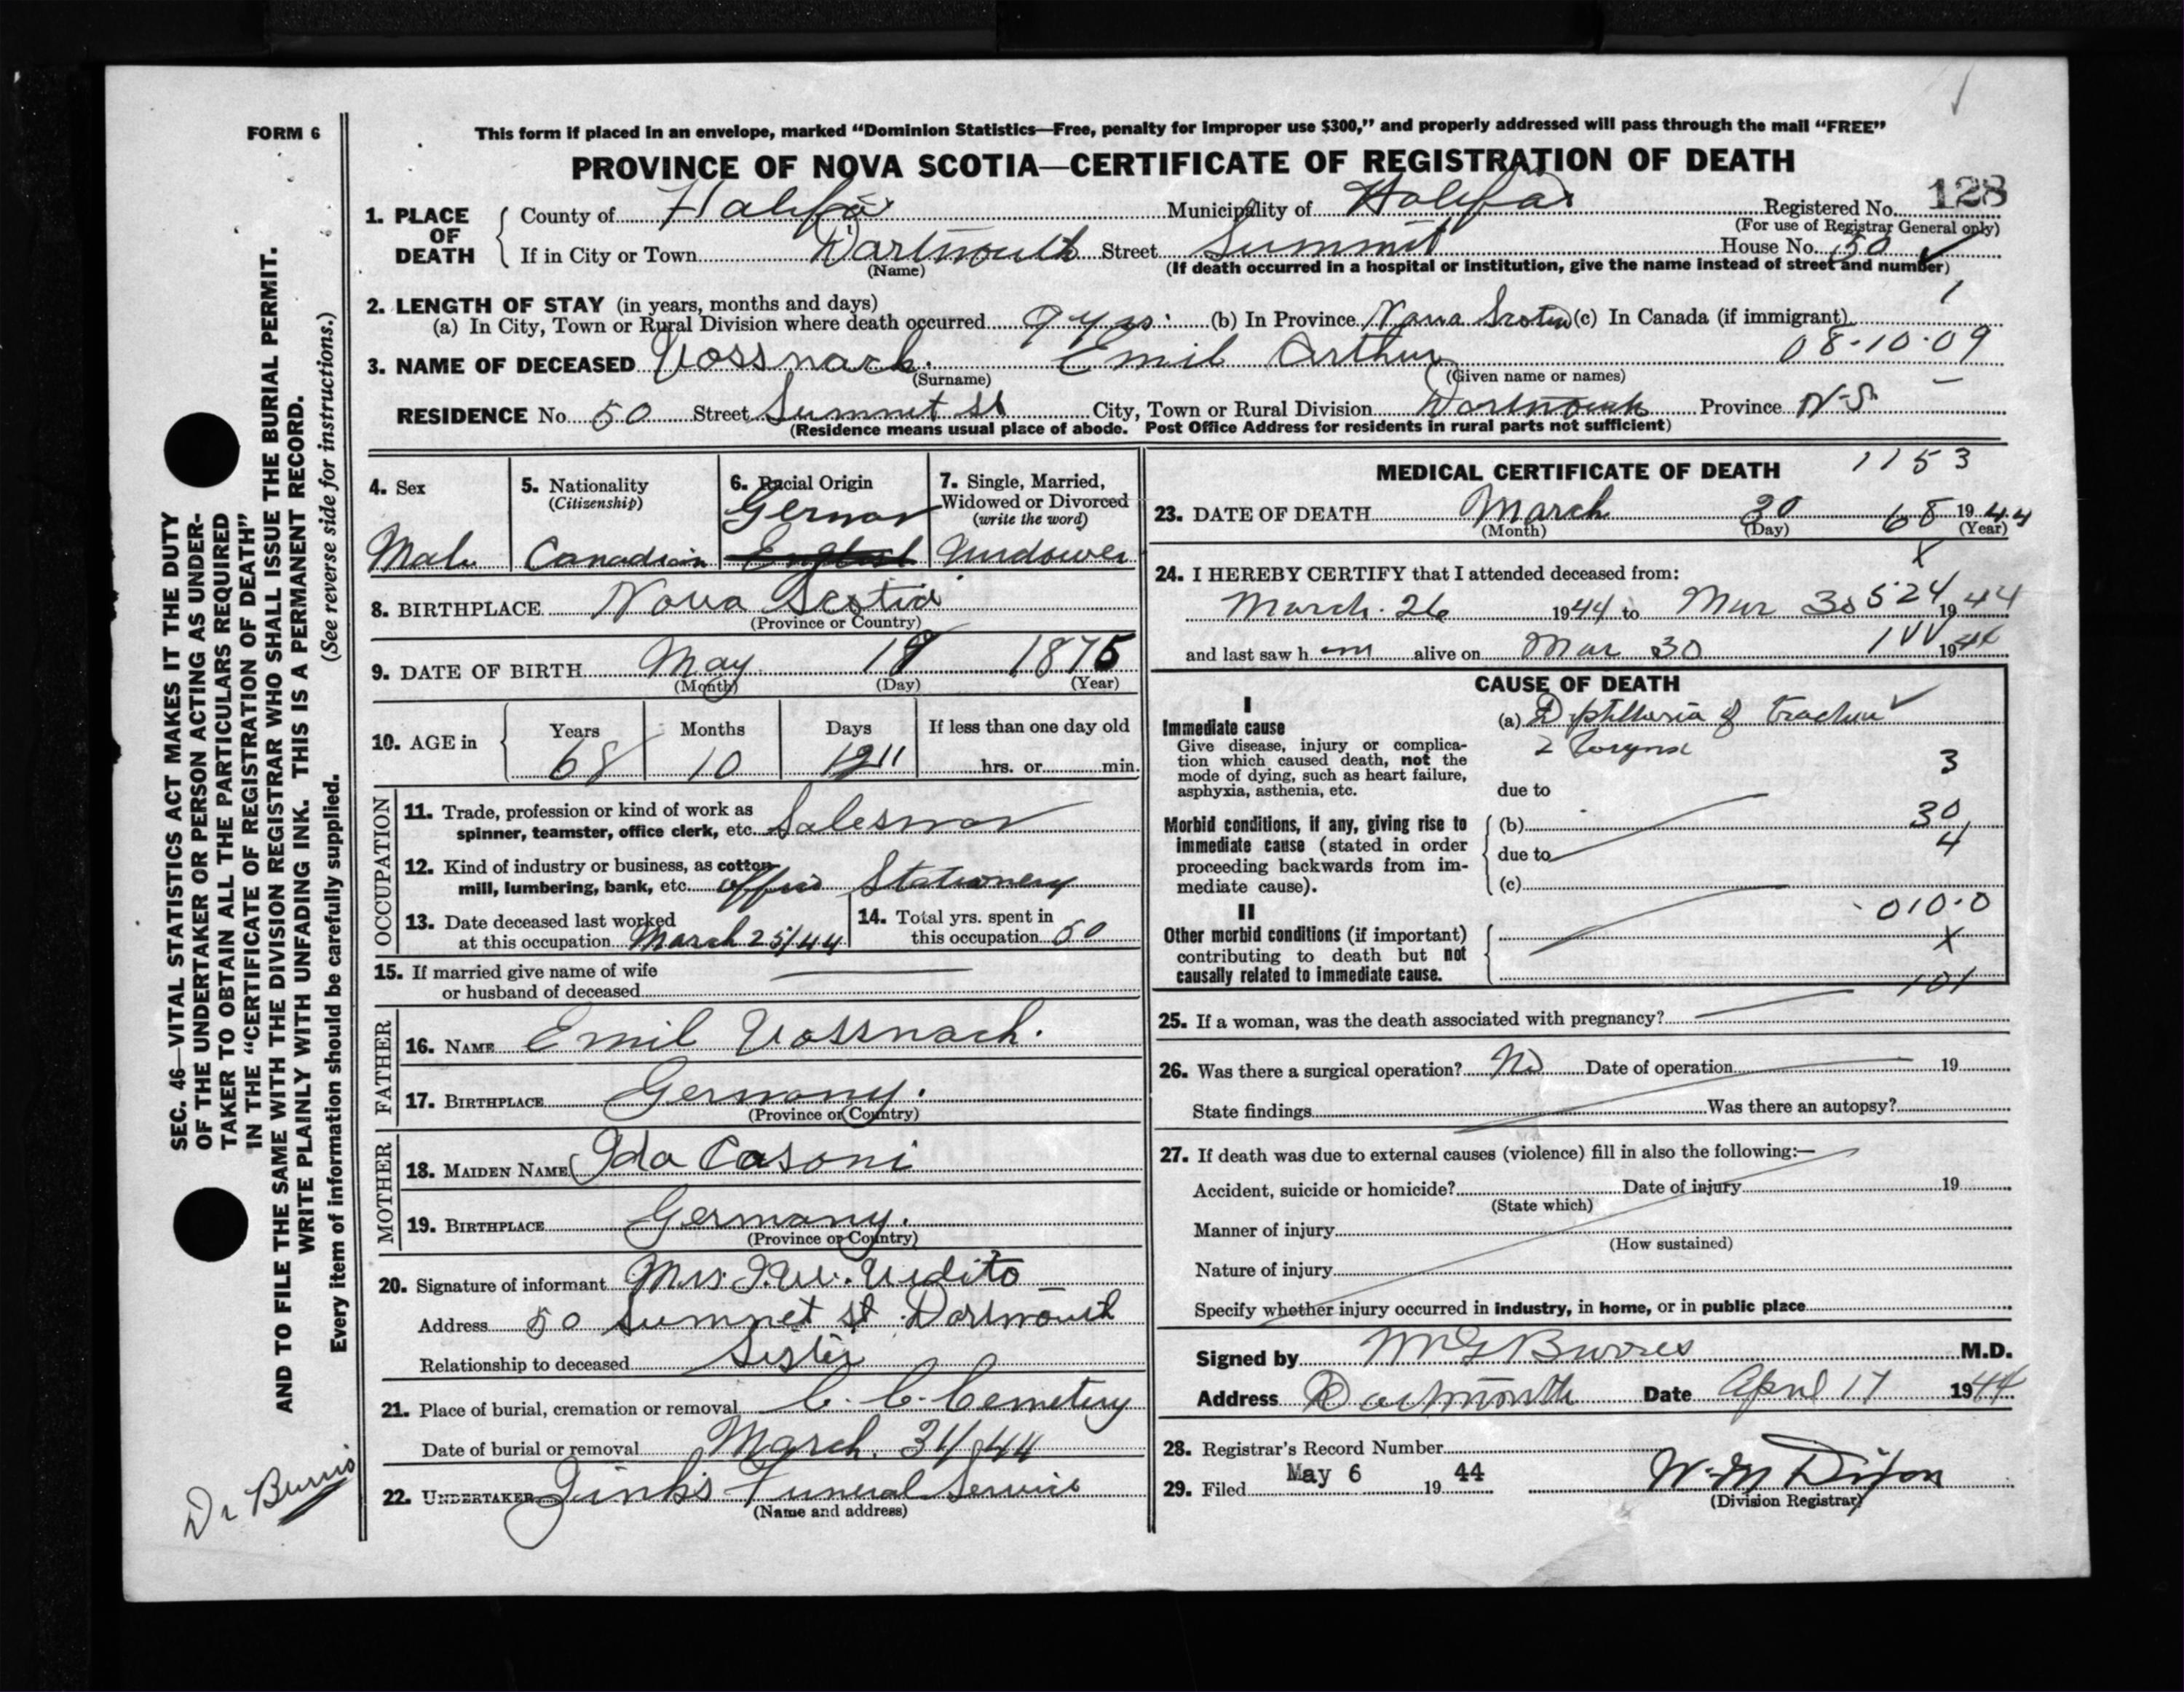 FORM 6
This form if placed in an envelope, marked “Dominion Statistics—Free, penalty for improper use $300,” and properly addressed will pass through the mail “FREE”
PROVINCE OF NOVA SCOTIA—CERTIFICATE OF REGISTRATION OF DEATH
1. PLACE OF DEATH County of Halifax Municipality of Halifax Registered No. 128
(For use of Registrar General only)
If in City or Town Dartmouth Street Summit House No. 50
(Name) (If death occurred in a hospital or institution, give the name instead of street and number)
2. LENGTH OF STAY (in years, months and days) 1
(a) In City, Town or Rural Division where death occurred 9 yrs. (b) In Province Nova Scotia (c) In Canada (if immigrant)
08-10-09
3. NAME OF DECEASED Vossnack. Emil Arthur
(Surname) (Given name or names)
RESIDENCE No. 50 Street Summit St City, Town or Rural Division Dartmouth Province N-S.
(Residence means usual place of abode. Post Office Address for residents in rural parts not sufficient)
4. Sex Male
5. Nationality (Citizenship) Canadian
6. Racial Origin German English
7. Single, Married, Widowed or Divorced (write the word) Widower
8. BIRTHPLACE Nova Scotia
(Province or Country)
9. DATE OF BIRTH May 19 1875
(Month) (Day) (Year)
10. AGE in Years Months Days If less than one day old
68 10 12 11 hrs. or min.
OCCUPATION
11. Trade, profession or kind of work as
spinner, teamster, office clerk, etc. Salesman
12. Kind of industry or business, as cotton
mill, lumbering, bank, etc. office Stationery
13. Date deceased last worked
at this occupation March 25/44
14. Total yrs. spent in
this occupation 50
15. If married give name of wife
or husband of deceased
FATHER
16. NAME Emil Vossnack.
17. BIRTHPLACE Germany.
(Province or Country)
MOTHER
18. MAIDEN NAME Ida Casoni
19. BIRTHPLACE Germany.
(Province or Country)
20. Signature of informant Mrs. Vidito
Address 50 Summet St Dartmouth
Relationship to deceased Sister
21. Place of burial, cremation or removal C. C. Cemetery
Date of burial or removal March. 31/44
22. UNDERTAKER Zink's Funeral Service
(Name and address)
MEDICAL CERTIFICATE OF DEATH 1153
23. DATE OF DEATH March 30 68 1944
(Month) (Day) (Year)
X
24. I HEREBY CERTIFY that I attended deceased from:
March. 26 1944 to Mar 30 524 1944
and last saw h im alive on Mar 30 1944
CAUSE OF DEATH
I
Immediate cause
Give disease, injury or complica-
tion which caused death, not the
mode of dying, such as heart failure,
asphyxia, asthenia, etc.
(a) Diphtheria of trachea
& larynx
3
due to
Morbid conditions, if any, giving rise to
immediate cause (stated in order
proceeding backwards from im-
mediate cause).
(b) 30
due to 4
(c)
010.0
II
Other morbid conditions (if important)
contributing to death but not
causally related to immediate cause.
X
101
25. If a woman, was the death associated with pregnancy?
26. Was there a surgical operation? No Date of operation 19
State findings Was there an autopsy?
27. If death was due to external causes (violence) fill in also the following:—
Accident, suicide or homicide? Date of injury 19
(State which)
Manner of injury
(How sustained)
Nature of injury
Specify whether injury occurred in industry, in home, or in public place
Signed by M G Burris M.D.
Address Dartmouth Date April 17 1944
28. Registrar's Record Number
29. Filed May 6 19 44 W. M Dixon
(Division Registrar)
SEC. 46—VITAL STATISTICS ACT MAKES IT THE DUTY
OF THE UNDERTAKER OR PERSON ACTING AS UNDER-
TAKER TO OBTAIN ALL THE PARTICULARS REQUIRED
IN THE “CERTIFICATE OF REGISTRATION OF DEATH”
AND TO FILE THE SAME WITH THE DIVISION REGISTRAR WHO SHALL ISSUE THE BURIAL PERMIT.
WRITE PLAINLY WITH UNFADING INK. THIS IS A PERMANENT RECORD.
Every item of information should be carefully supplied. (See reverse side for instructions.)
Dr Burris